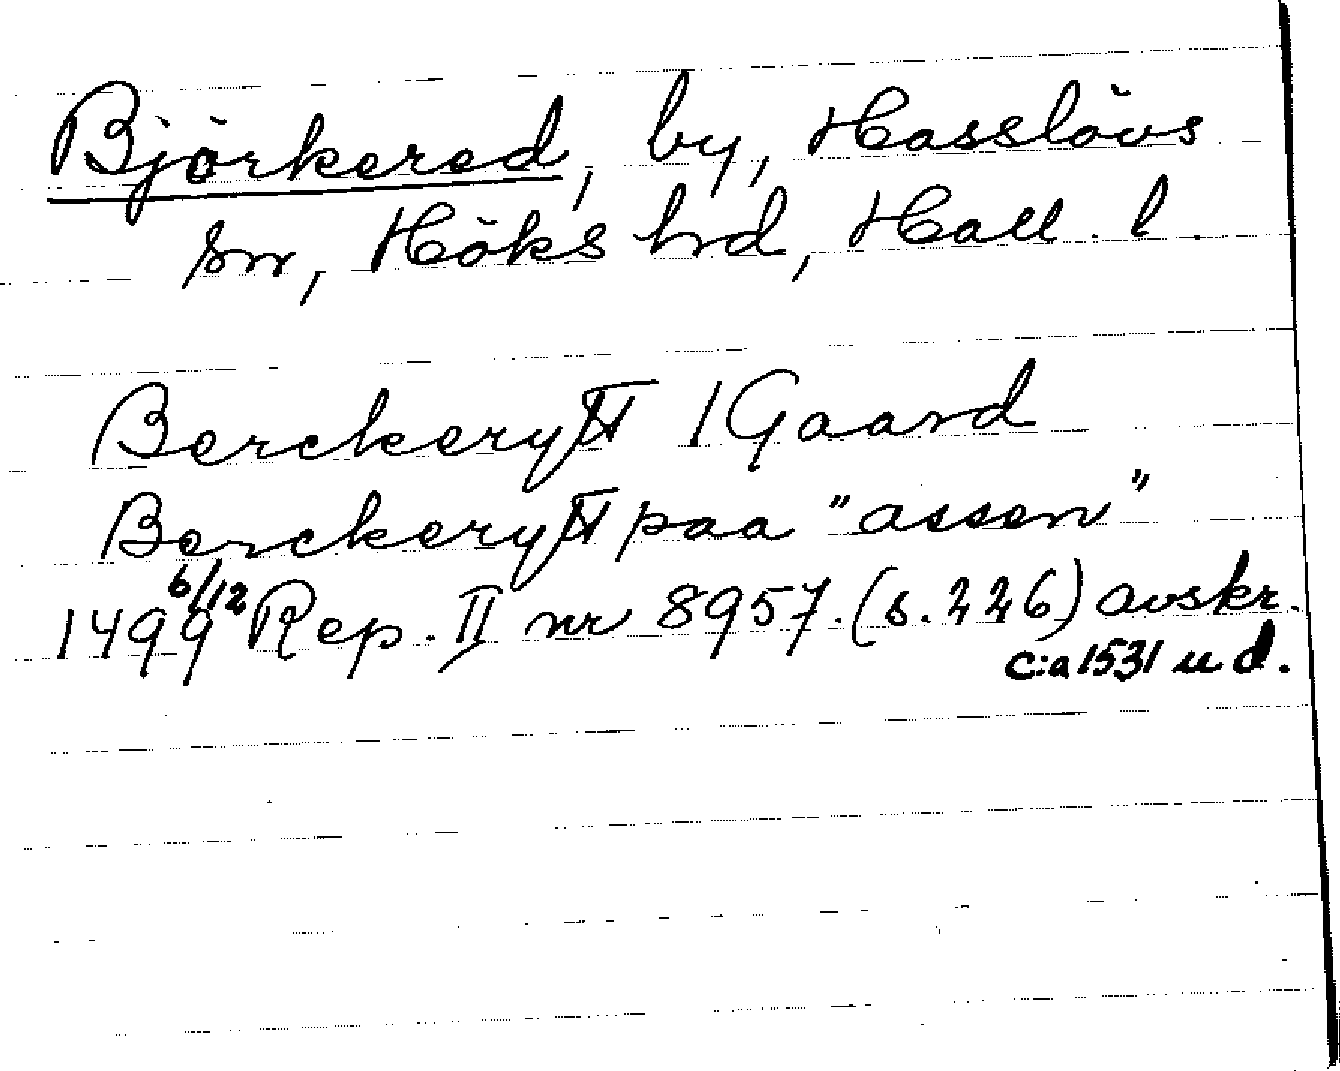 Björkered, by, Hasslövs
sn, Höks hrd, Hall. l.
Berckerytt 1 Gaard
Berckerytt paa "assen"
1499 6/12 Rep. II nr 8957. (s. 226) avskr.
c:a 1531 u d.